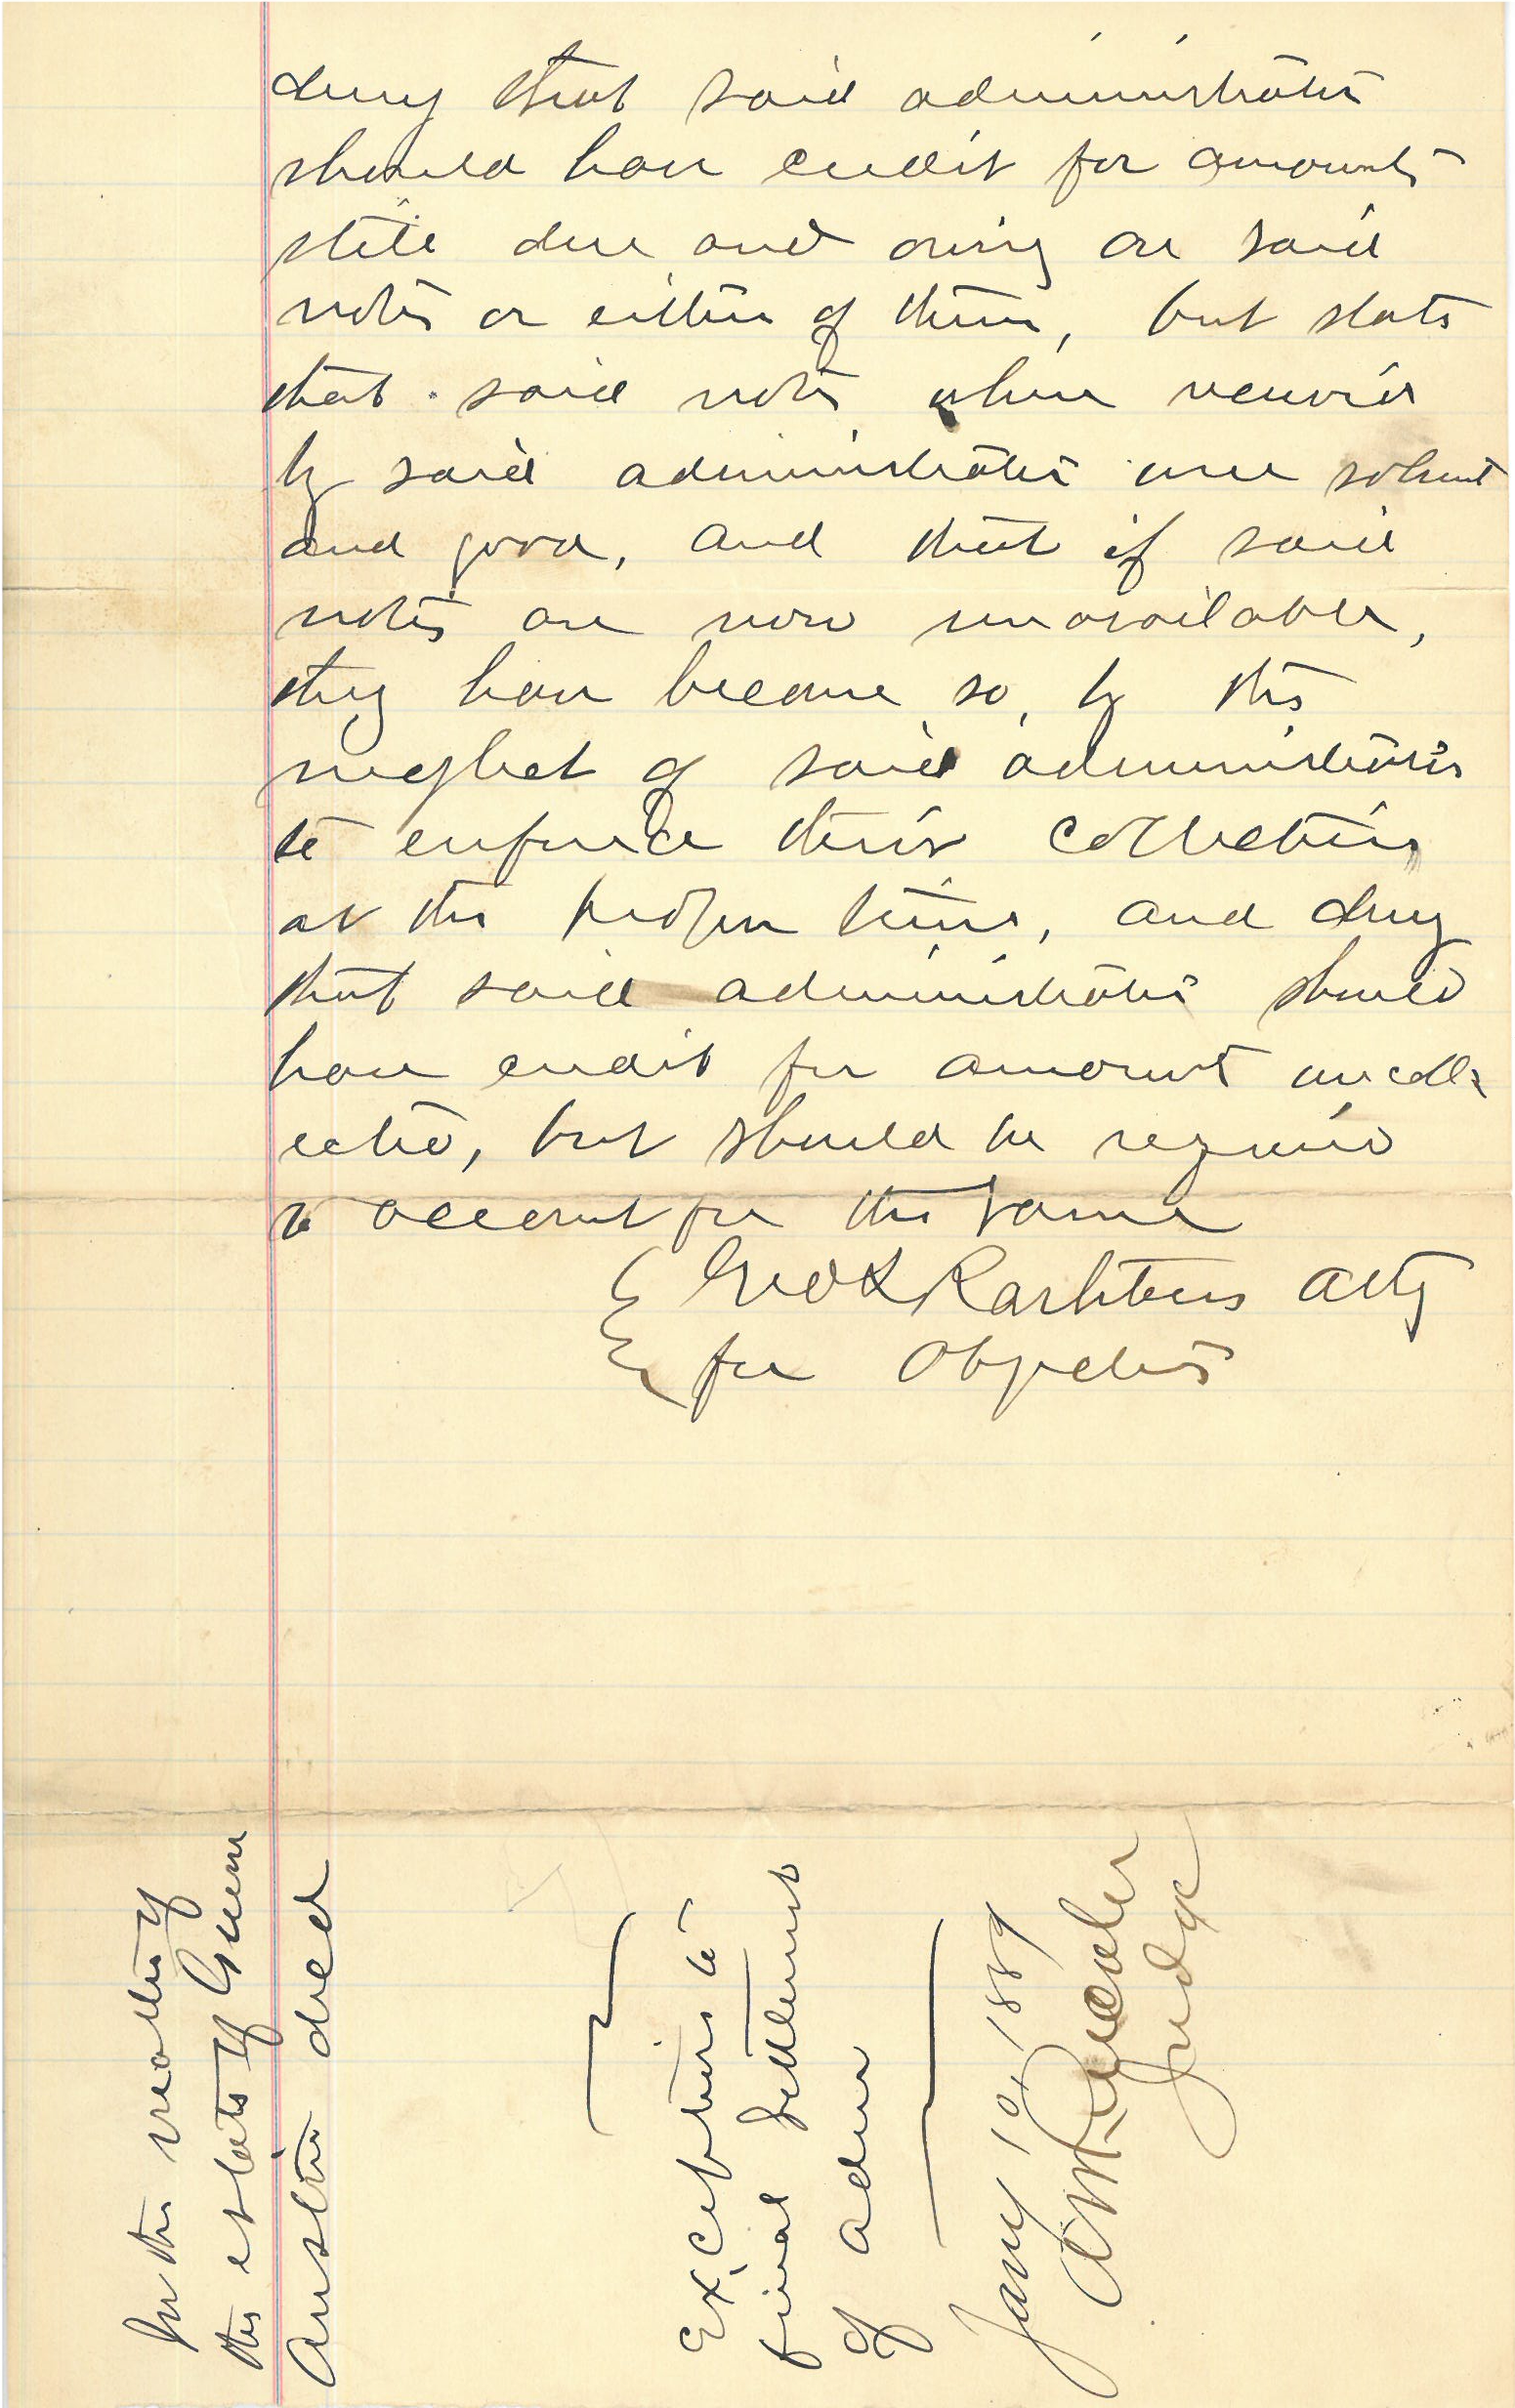 deny that said administrator
should have credit for amounts
still due and owing on said
notes or either of them, but states
that said notes when received
by said administrator were solvent
and good, and that if said
notes are now unavailable,
they have become so, by the
neglect of said administrator
to enforce their collection
at the proper time, and deny
that said administrator should
have credit for amount uncoll-
ected, but should be required
to account for the same
Geo L Atty
for Objectors
In the matter of
the estate of Green
Austin decd
Exceptions to
final settlement
of admr
Jany 10, 1889
Judge